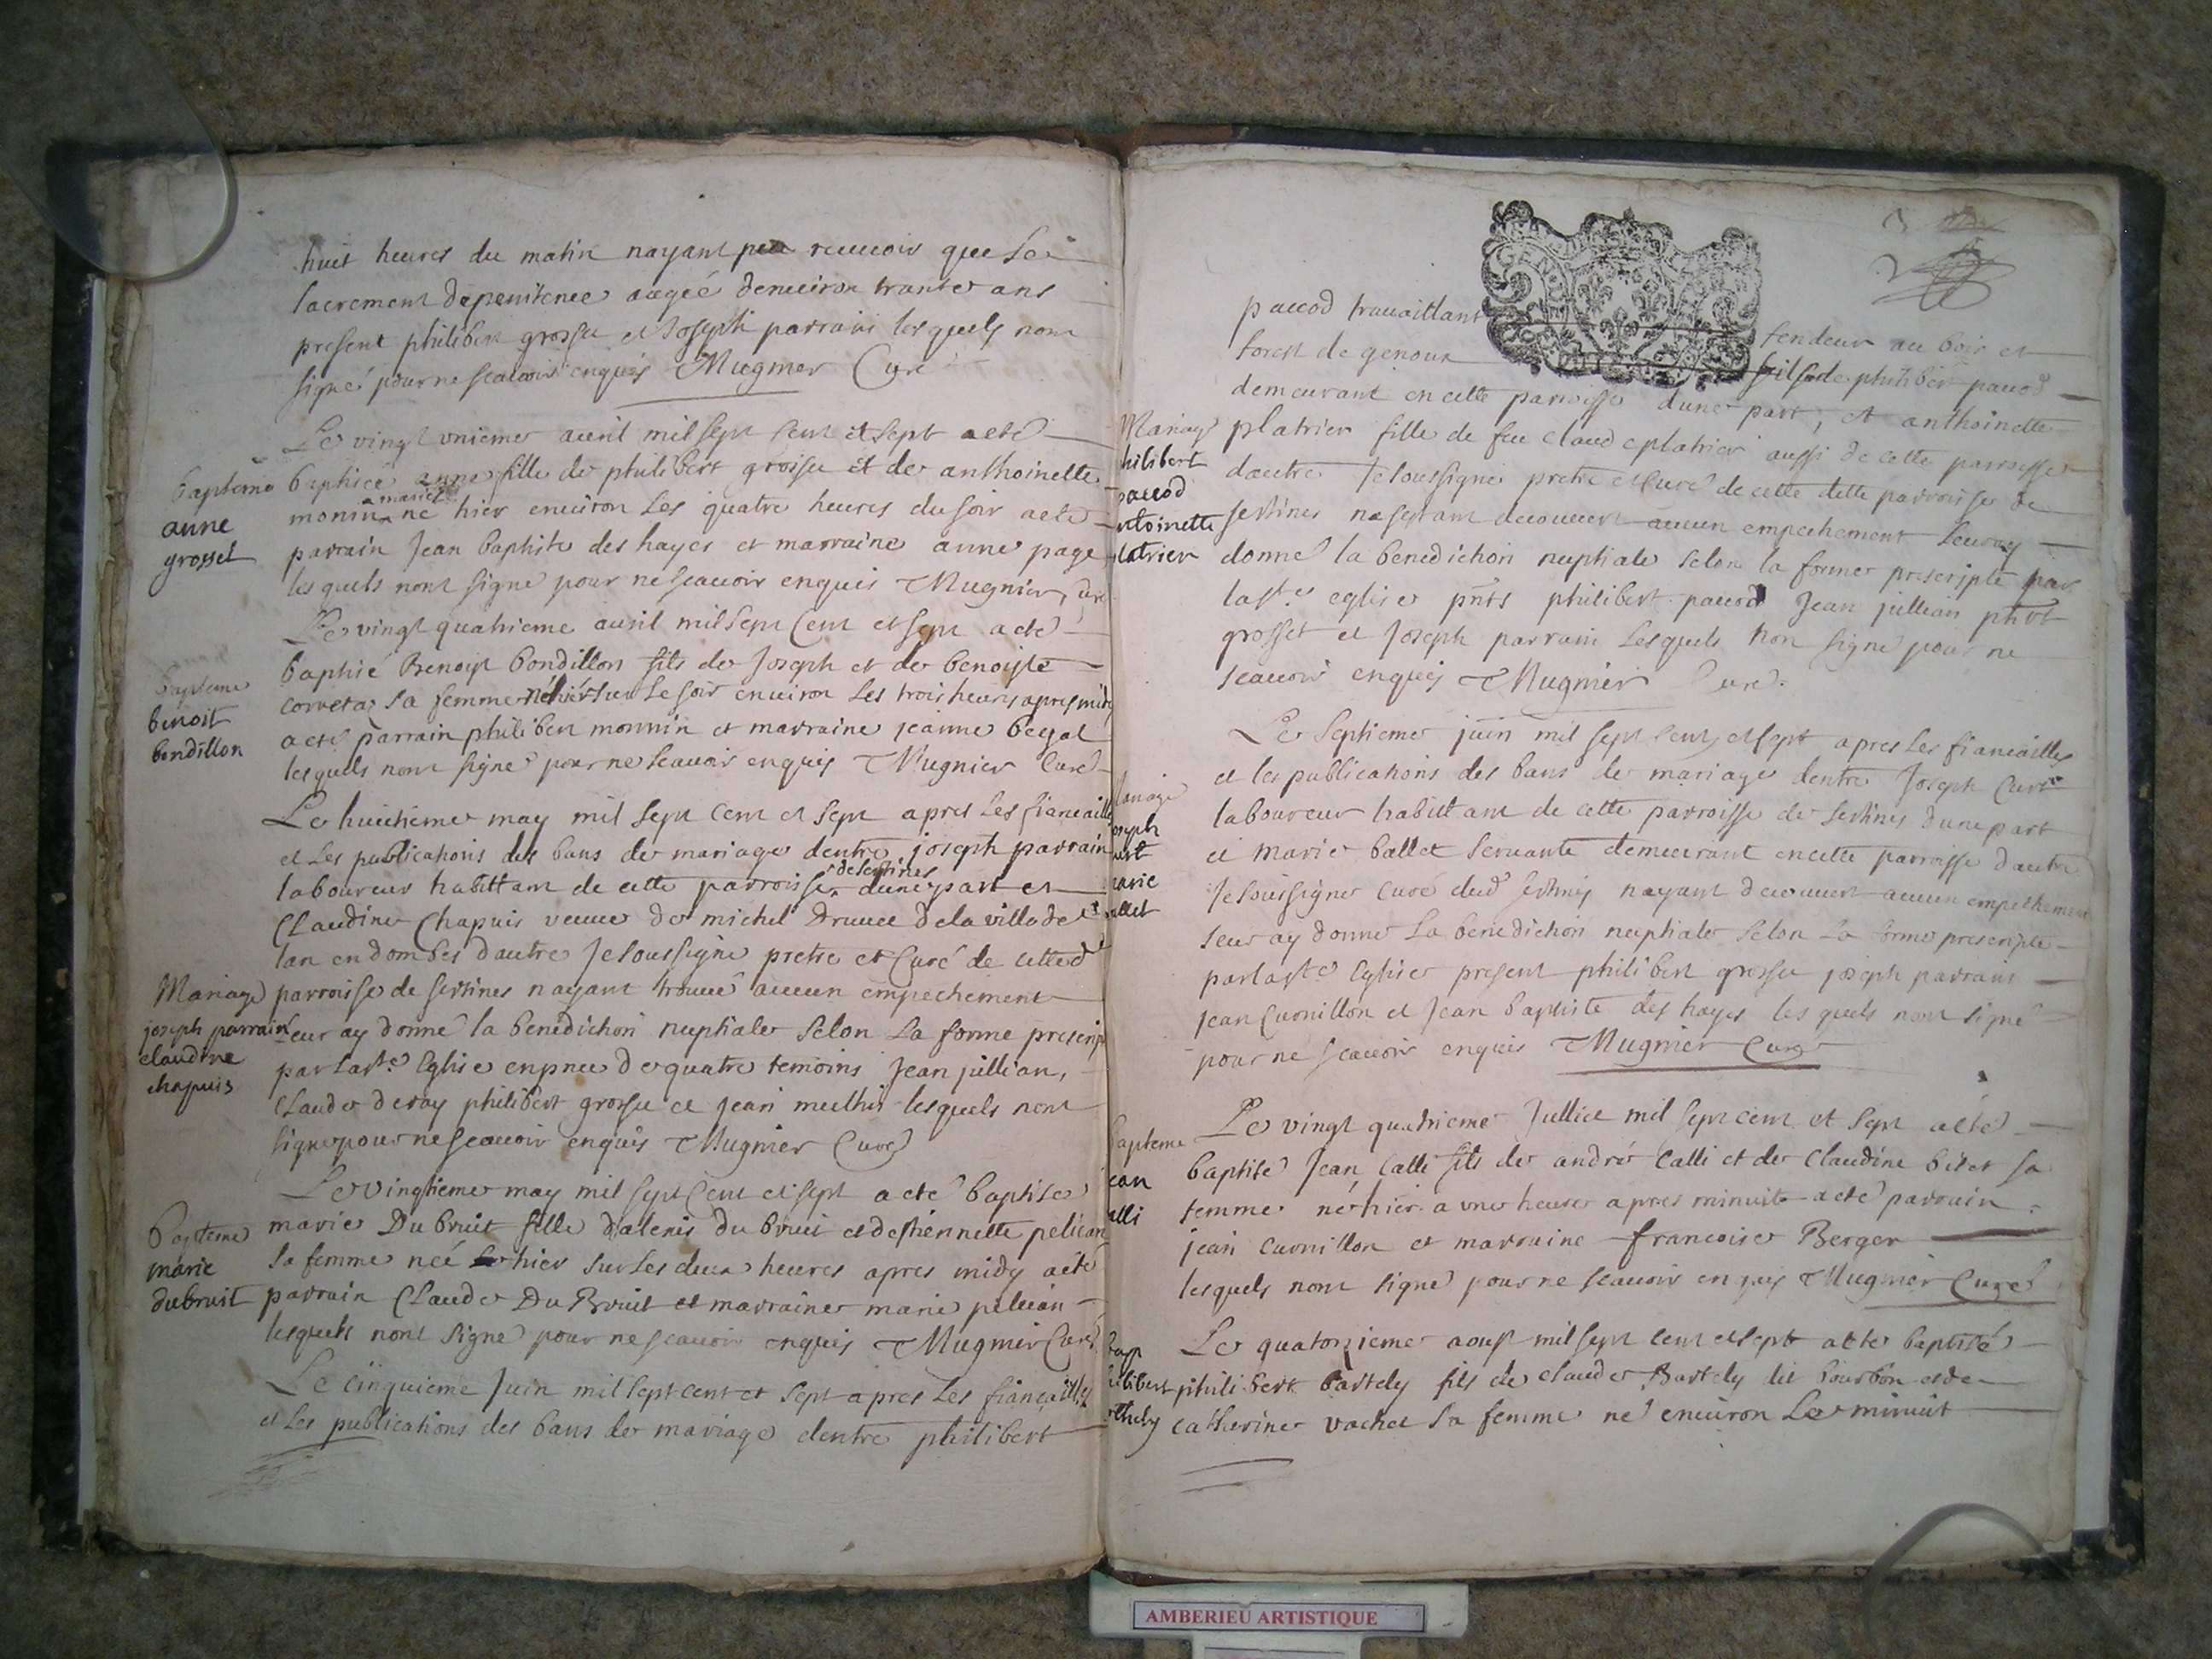 huit heures du matin nayant peu recevoir que le
sacrement de penitence aagée denviron trante ans
present philibert grosset et Joseph parrain lesquels nont
signé pour ne scavoir enquis Mugnier Curé
Le vingt vnieme avril mil sept cent et sept a eté
Bapteme
anne
grosset
baptiée anne fille de philibert grosset et de anthoinette
monin mariés né hier environ les quatre heures du soir a eté
parrain Jean baptiste des hayes et marraine anne page
lesquels nont signé pour ne scavoir enquis Mugnier Curé
Le vingt quatrieme avril mil sept cent et sept a eté
Bapteme
benoit
bondillon
baptié Benoist bondillon fils de Joseph et de benoiste
sa femme né hier sur le soir environ les trois heures apres midy
a eté parrain philibert monnin et marraine jeanne
lesquels nont signé pour ne scavoir enquis Mugnier Curé
Le huictieme may mil sept cent et sept apres les fiancaille
et les publications des bans de mariage dentre joseph parrain
laboureur habittant de cette parroisse de sertines dune part et
Claudine Chapuis veuve de michel de la ville de
lan en dombes dautre Je soussigné pretre et Curé de cette d
Mariage
joseph parrain
claudine
chapuis
parroisse de sertines nayant trouvé aucun empechement
leur ay donné la benediction nuptiale selon la forme prescrip
par la ste Eglise en pnce de quatre temoins Jean jullian,
Claude philibert grosset et jean lesquels nont
signé pour ne scavoir enquis Mugnier Curé
Le vingtieme may mil sept Cent et sept a eté baptisé
Bapteme
marie
dubruit
marie Du bruit fille dalexis du bruit et destiennette pelican
sa femme née hier sur les deux heures apres midy a eté
parrain Claude Du Bruit et marraine marie pelican
lesquels nont signé pour ne scavoir enquis Mugnier Curé
Le cinquieme Juin mil sept cent et sept apres les fiancailles
et les publications des bans de mariage dentre philibert
paccod travaillant fendeur au bois et
forest de genoux fils de philibert paccod
demeurant en cette parroisse dune part, et anthoinette
Mariage
hilibert
paccod
ntoinette
latrier
platrier fille de feu claude platrier aussi de cette parroisse
dautre Je soussigné pretre et Curé de cette ditte parroisse de
sertines nesetant decouvert aucun empechement leur ay
donné la benediction nuptiale selon la forme prescripte par
la ste eglise pnts philibert paccod Jean jullian phbt
grosset et Joseph parrain lesquels non signé pour ne
scavoir enquis Mugnier Curé.
Le Septieme juin mil sept cent et sept apres les fiancailles
et les publications des bans de mariage dentre Joseph Curt
ariage
oseph
urt
arie
allet
laboureur habittant de cette parroisse de sertines dune part
et marie ballet servante demeurant en cette parroisse dautre
Je soussigné curé dud sertines nayant decouvert aucun empechement
leur ay donné la benediction nuptiale selon la forme prescripte
par la ste Eglise present philibert grosset joseph parrain
jean Curnillon et Jean baptiste des hayes lesquels nont signé
pour ne scavoir enquis Mugnier Curé
Le vingt quatrieme Jullict mil sept cent et sept a eté
Bapteme
ean
alli
baptisé Jean Calli fils de andré Calli et de Claudine bitet sa
femme né hier a une heure apres minuit a eté parrain
jean Curnillon et marraine francoise Berger
lesquels nont signé pour ne scavoir enquis Mugnier Curé
Le quatorzieme aoust mil sept cent et sept a eté baptisé
Bapt
hilibert
rthely
philibert bartely fils de claude Bartely dit bourbon et de
catherine vachet sa femme né environ le minuit
AMBERIEU ARTISTIQUE